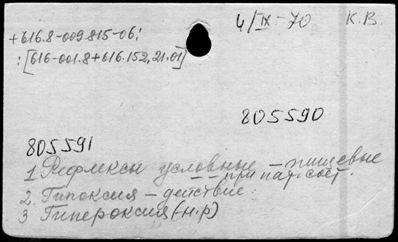 +616.8-009.815-06:
4/IX-70 К.В.
:[616-001.8+616.152.21.01]
805590
805591
1 Рефлексы условные – пищевые
– – при пат. сост.
2. Гипоксия – действие.
3 Гипероксия (н.р)